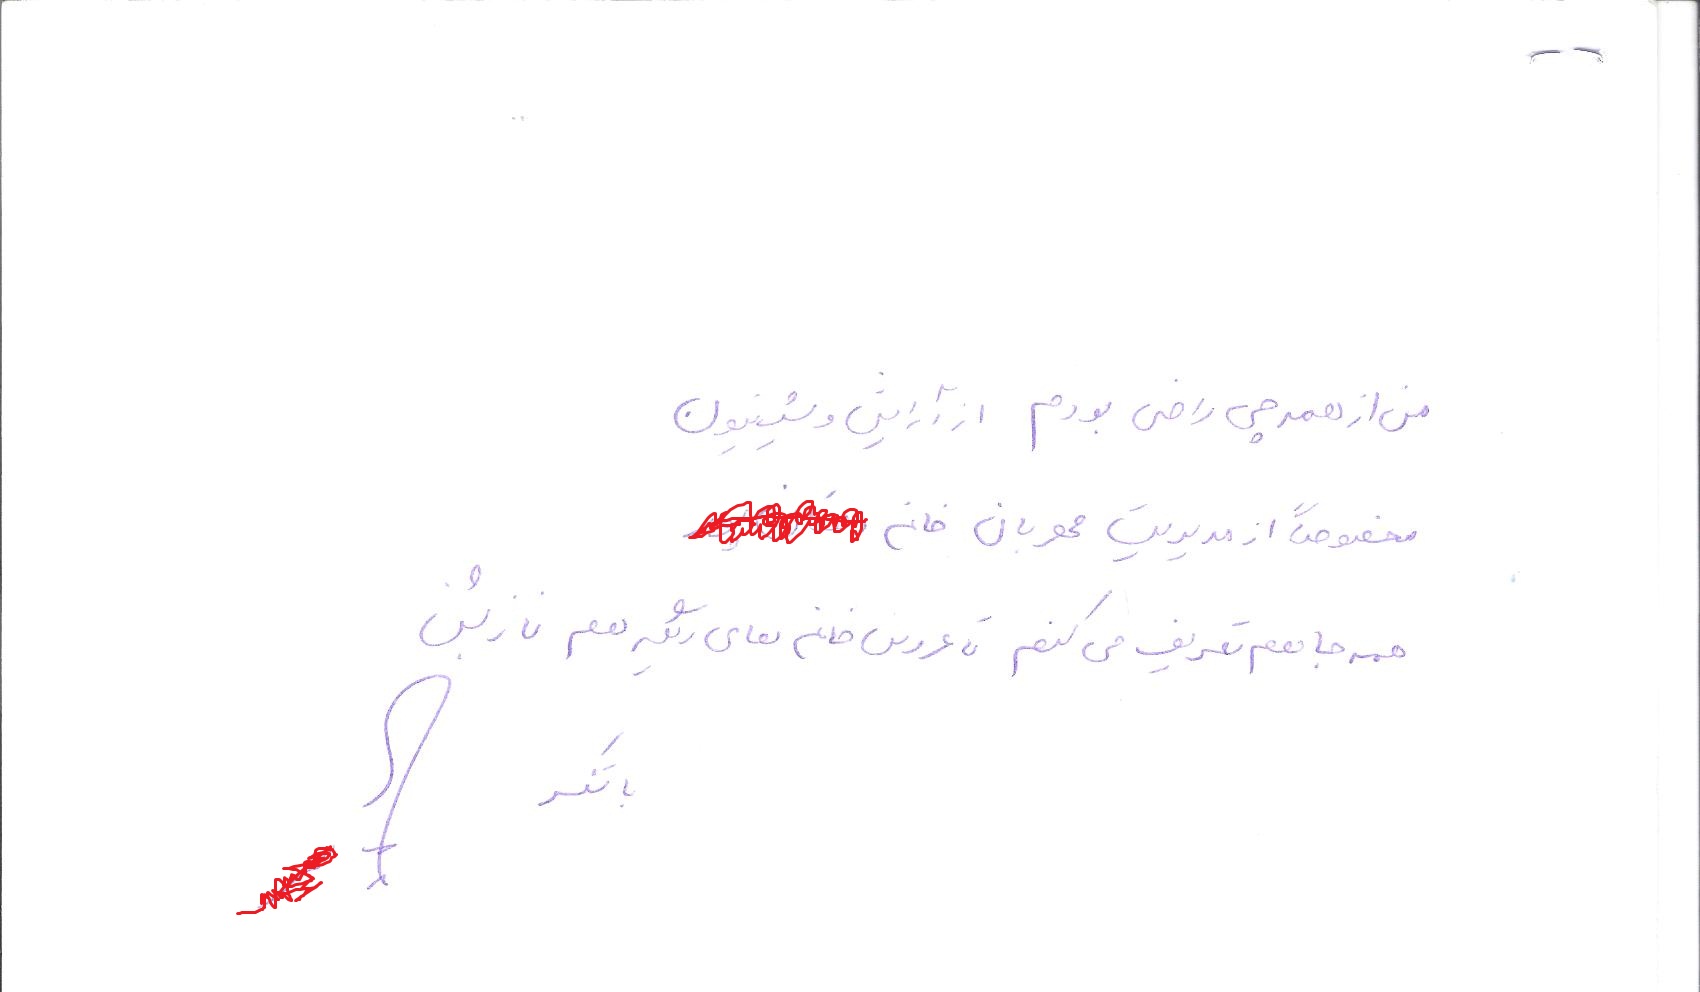 من از همه چی راضی بودم از آرایش و شینیون
مخصوصاً از مدیریت مهربان خانم
همه جا هم تعریف می کنم تا عروس خانم های دیگه هم ناز بشن
باتشکر